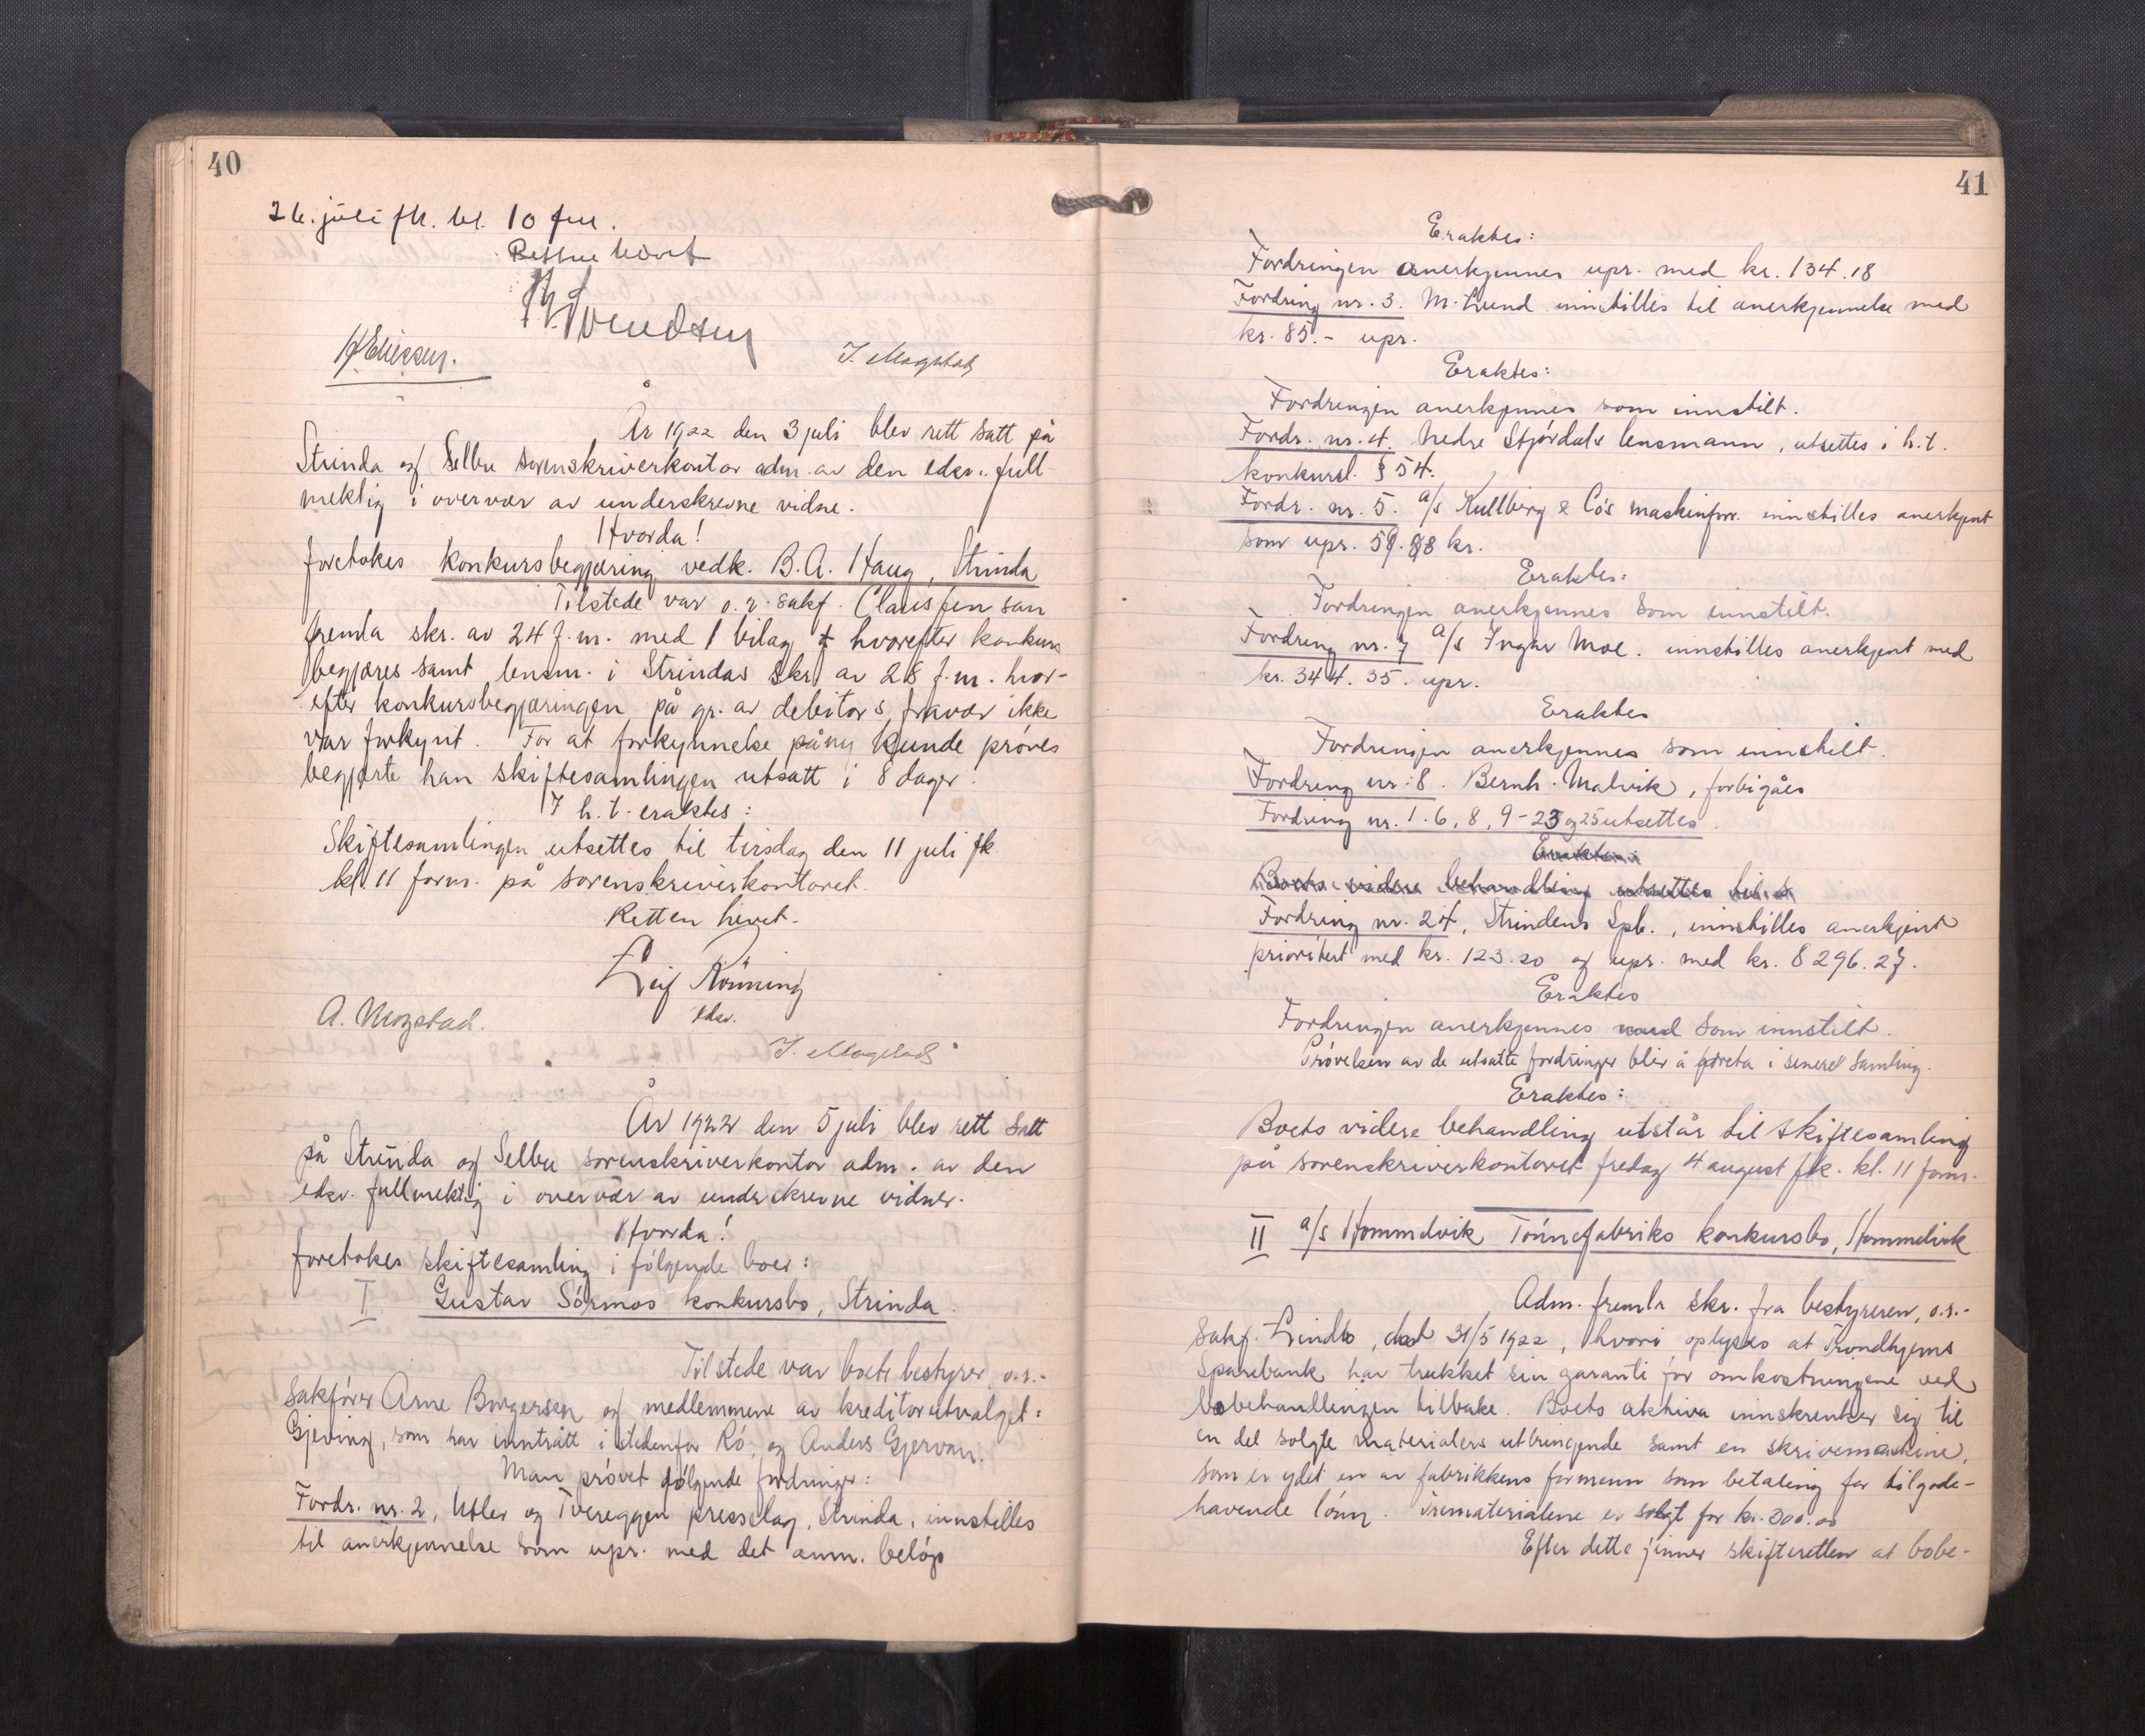 40
26. juli fk. kl. 10 fm.
Retten hævet
A. Mogstad.
J. Mogstad
År 1922 den 3 juli blev rett satt på
Strinda og Selbu sorenskriverkontor adm. av den edsv. full-
mektig i overvær av underskrevne vidne.
Hvorda!
foretokes konkursbegjæring vedk. B. A. Haug, Strinda
Tilstede var o.r. sakf. Clausen som
fremla skr. av 24 f.m. med 1 bilag hvorefter konkurs
begjæres samt lensm. i Strindas skr. av 28 f.m. hvor-
efter konkursbegjæringen på gr. av debitors fravær ikke
var forkynt. For at forkynnelse påny kunde prøves
begjærte han skiftesamlingen utsatt i 8 dager.
I h.t. eraktes:
Skiftesamlingen utsettes til tirsdag den 11 juli fk.
kl. 11 form. på sorenskriverkontoret.
Retten hevet.
Leif Rönning
edsv.
A. Mogstad.
J. Mogstad
År 1922 den 5 juli blev rett satt
på Strinda og Selbu sorenskriverkontor adm. av den
edsv. fullmektig i overvær av underskrevne vidner.
Hvorda!
foretokes skiftesamling i følgende boer:
I Gustav Sörmos konkursbo, Strinda.
Tilstede var boets bestyrer, o.r.-
sakfører Arne Borgersen og medlemmene av kreditorutvalget:
Gjeving, som har inntrått i stedenfor Rö, og Anders Gjervan.
Man prövet fölgende fordringer:
Fordr. nr. 2, Utler og Tvereggen presselag, Strinda, innstilles
til anerkjennelse som upr. med det anm. belöp
41
Eraktes:
Fordringen anerkjennes upr. med kr. 134.18
Fordring nr. 3. M. Lund innstilles til anerkjennelse med
kr. 85.- upr.
Eraktes:
Fordringen anerkjennes som innstilt.
Fordr. nr. 4. Nedre Stjördals lensmann, utsettes i h.t.
konkursl. § 54.
Fordr. nr. 5. a/s Kullberg & Co's maskinforr. innstilles anerkjent
som upr. 59.98 kr.
Eraktes:
Fordringen anerkjennes som innstilt.
Fordring nr. 7 a/s Ingar Moe. innstilles anerkjent med
kr. 344.35. upr.
Eraktes
Fordringen anerkjennes som innstilt.
Fordring nr. 8. Bernh. Malvik, forbigåes
Fordring nr. 1. 6, 8, 9-23 og 25 utsettes.
Eraktes:
Boets videre behandling utsettes til
Fordring nr. 24, Strindens Spb., innstilles anerkjent
prioritert med kr. 123.20 og upr. med kr. 8296.27.
Eraktes
Fordringen anerkjennes som innstilt.
Prövelsen av de utsatte fordringer blir å foreta i senere samling.
Eraktes:
Boets videre behandling utstår til skiftesamling
på sorenskriverkontoret fredag 4 august fk. kl. 11 form.
II a/s Hommelvik Tönnefabriks konkursbo, Hommelvik
Adm. fremla skr. fra bestyreren, o.r.-
sakf. Lindbo, dat 31/5 1922, hvori oplyses at Trondhjems
Sparebank har trukket sin garanti for omkostningene ved
bobehandlingen tilbake. Boets aktiva innskrenker sig til
en del solgte materialers utbringende samt en skrivemaskine,
som er ydet en av fabrikkens formenn som betaling for tilgode-
havende lönn. Trematerialene er solgt for kr. 200.00
Efter dette finner skifteretten at bobe-